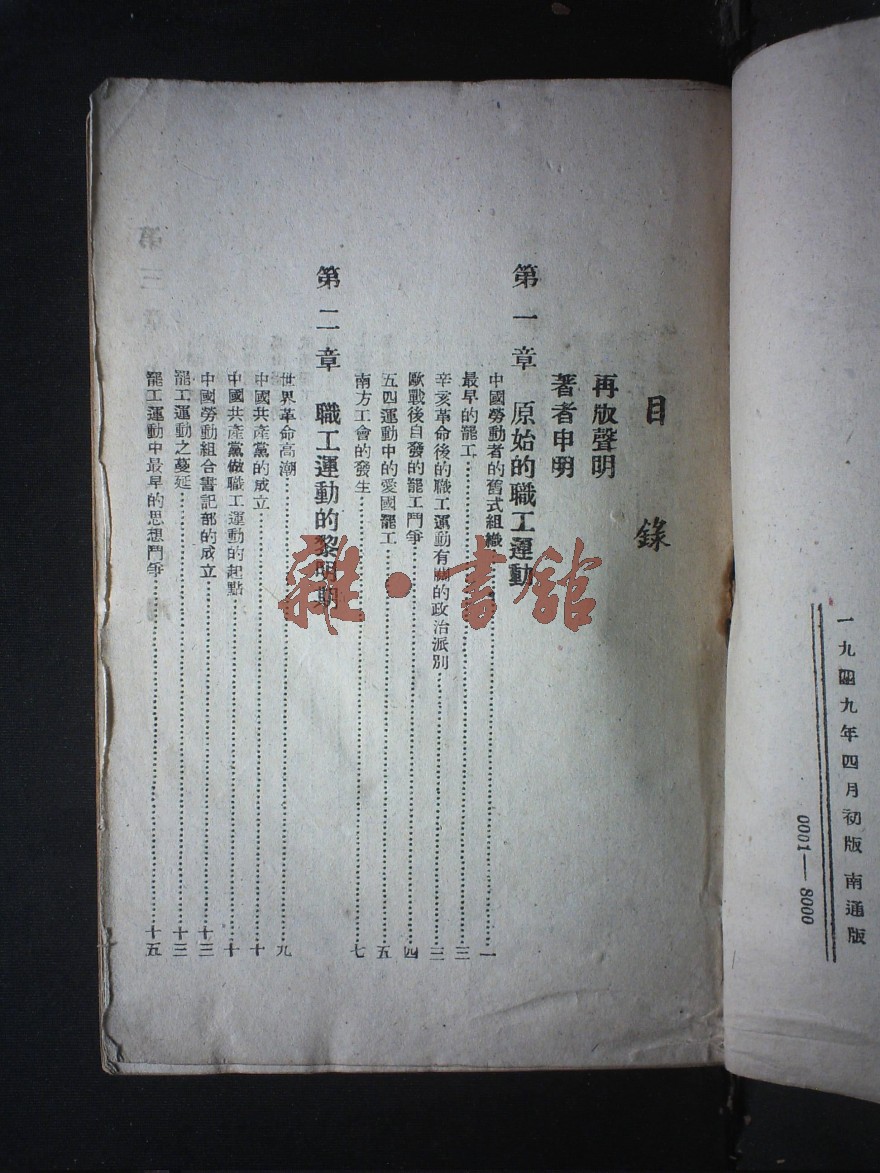 一九四九年四月初版 南通版
0001—8000
目錄
再版聲明
著者申明
第一章 原始的職工運動
中國勞動者的舊式組織……一
最早的罷工……三
辛亥革命後的職工運動有關的政治派別……三
歐戰後自發的罷工鬥爭……四
五四運動中的愛國罷工……五
南方工會的發生……七
第二章 職工運動的黎明期
世界革命高潮……九
中國共產黨的成立……十
中國共產黨做職工運動的起點……十
中國勞動組合書記部的成立……十三
罷工運動之蔓延……十三
罷工運動中最早的思想鬥爭……十五
雜·書館